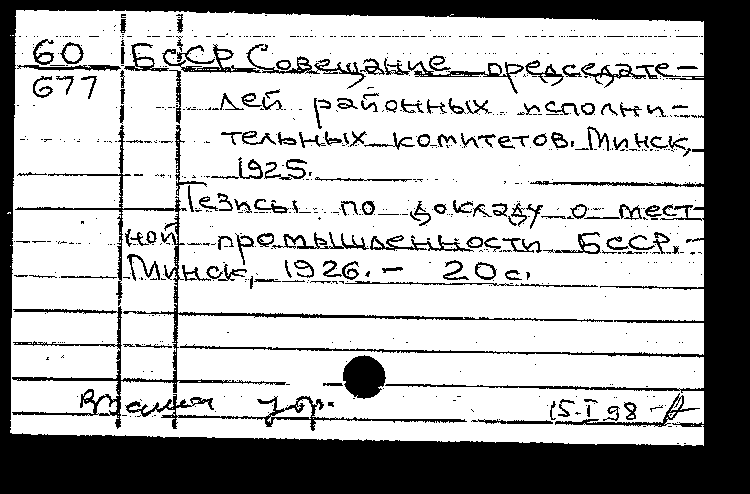 60 БССР. Совещание председате-
677
лей районных исполни-
тельных комитетов. Минск,
1925.
Тезисы по докладу о мест-
ной промышленности БССР.-
Минск, 1926.- 20с.
15.I 98